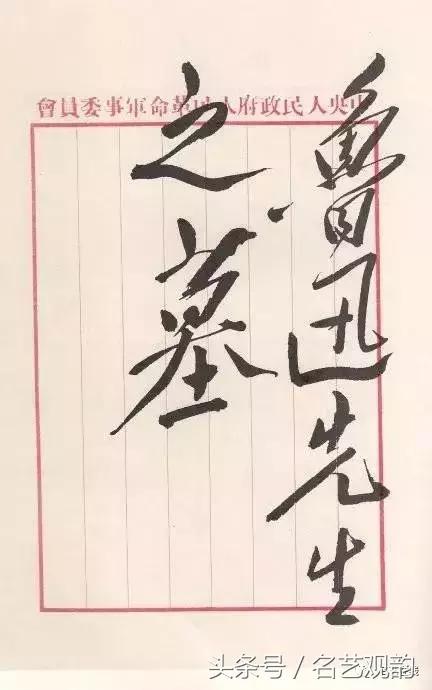 中央人民政府人民革命軍事委員會
魯迅先生
之墓
头条号/名艺观韵